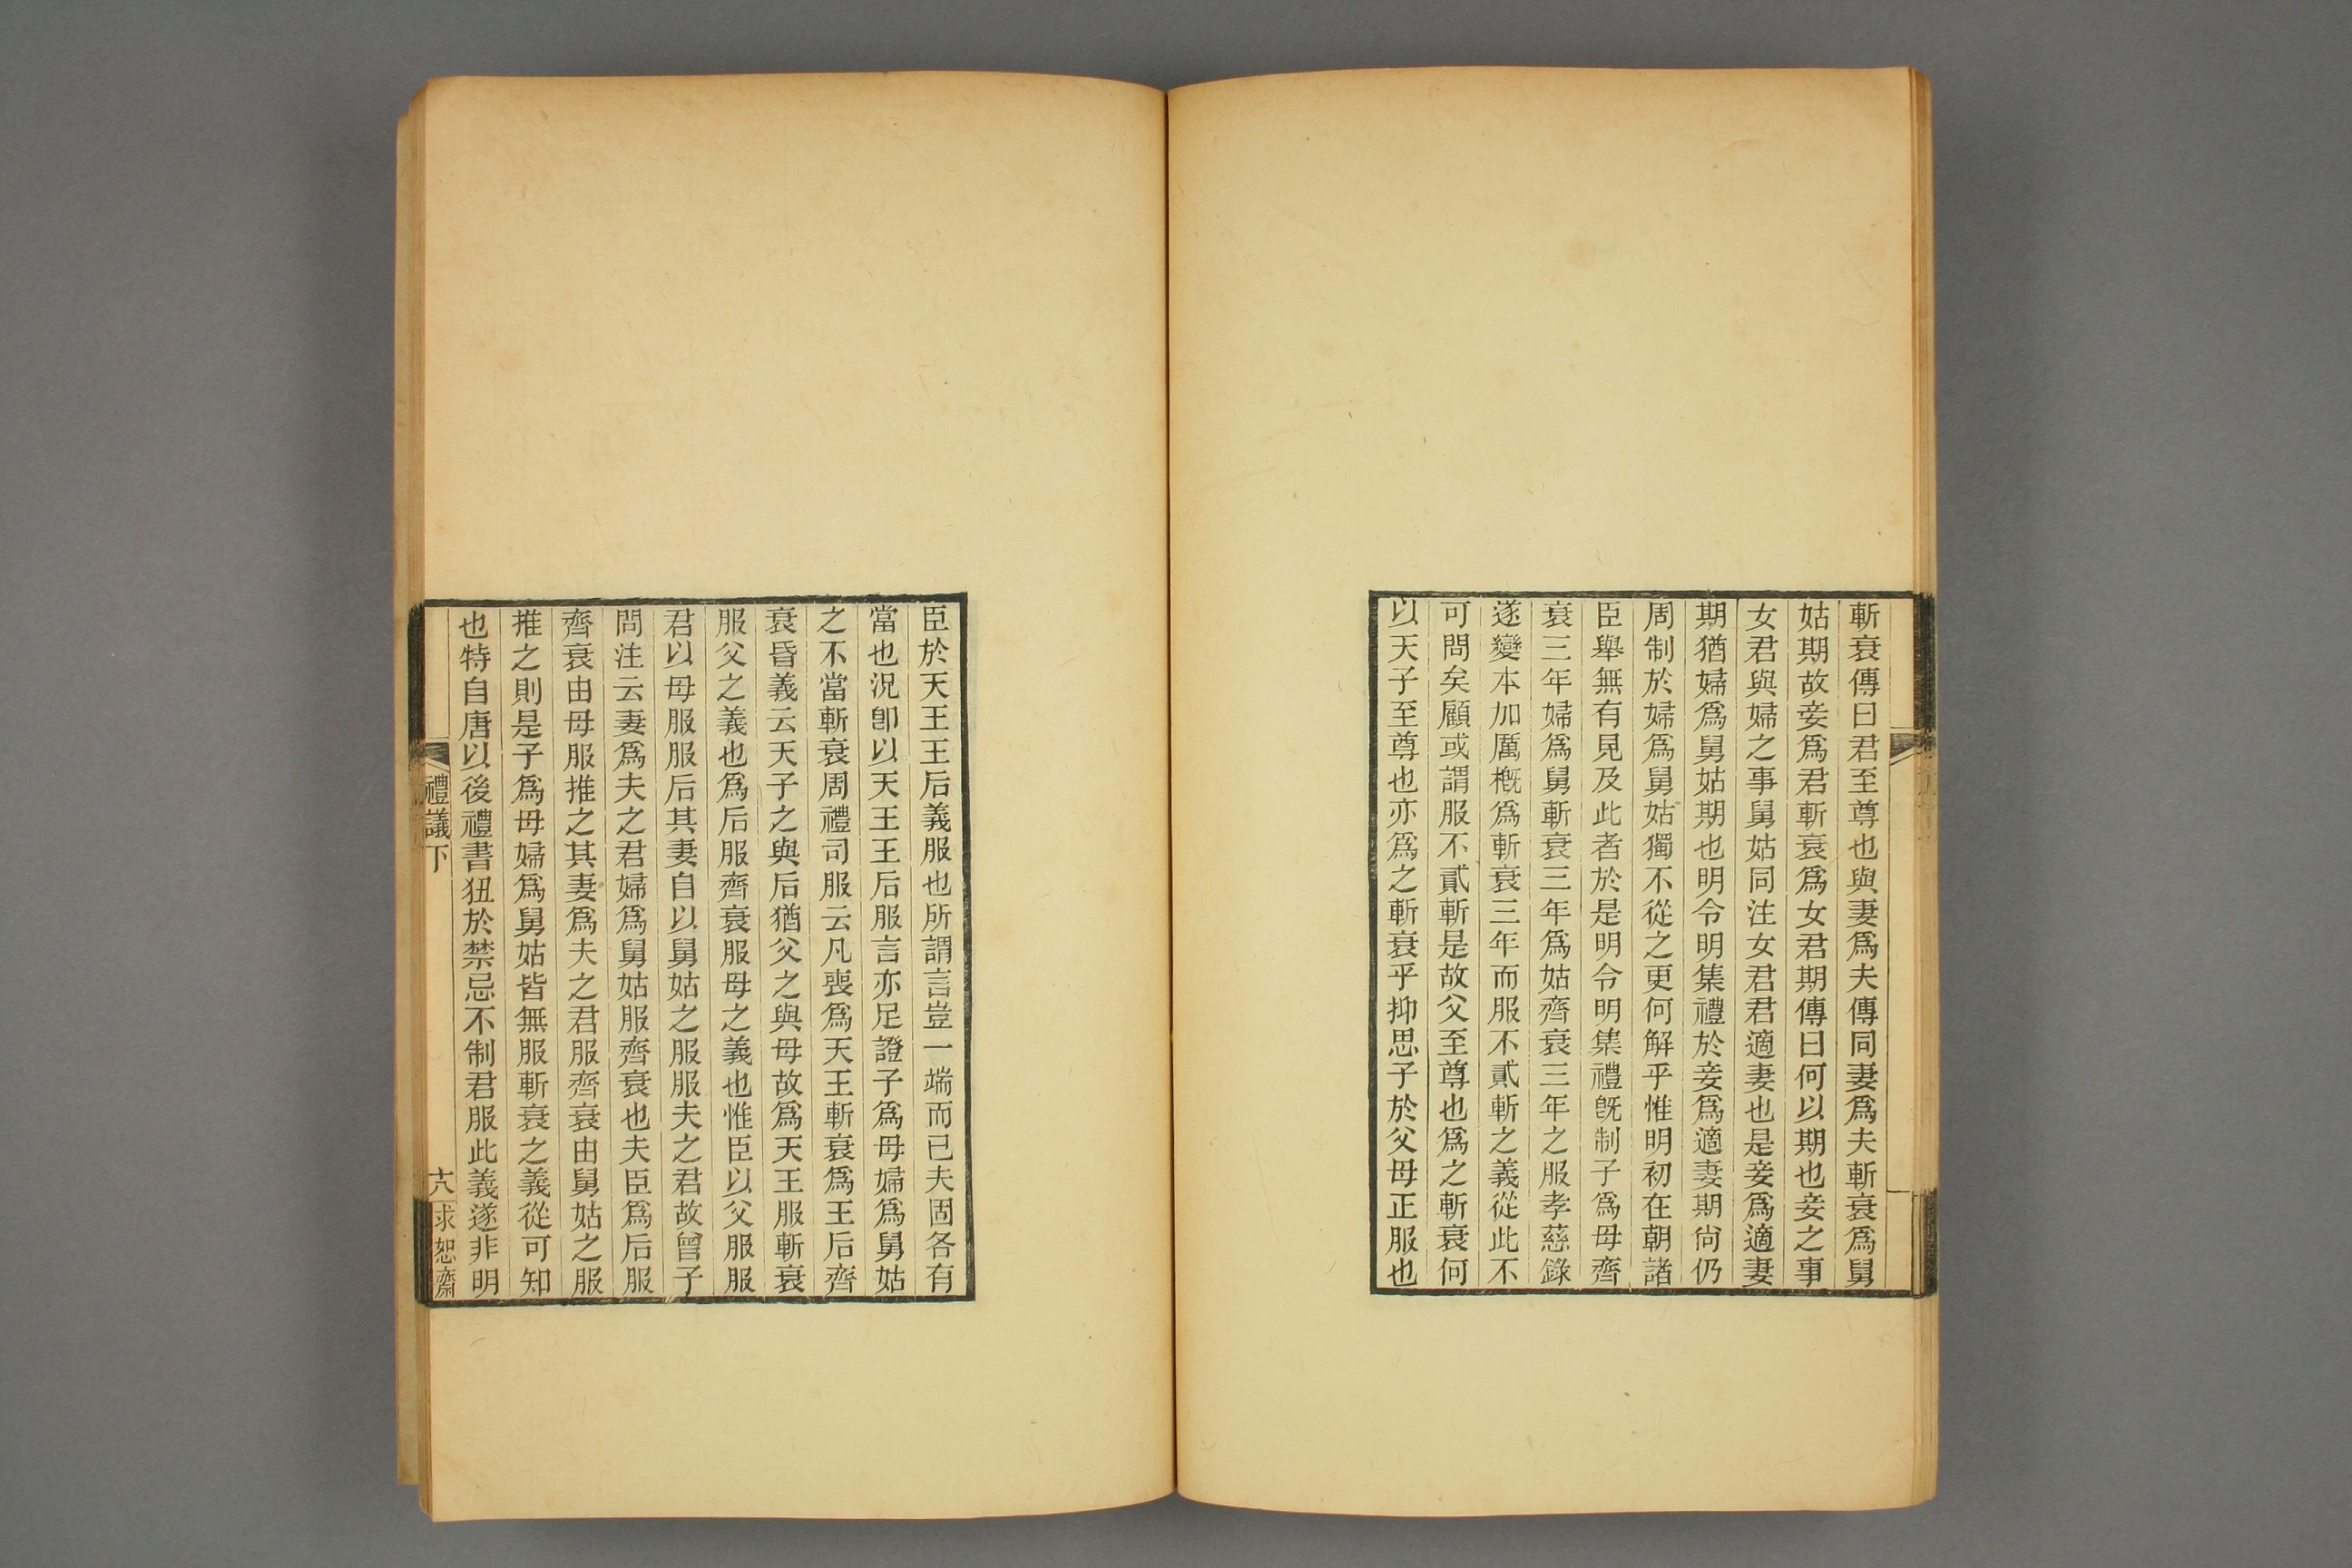 斬衰傳曰君至尊也與妻爲夫傳同妻爲夫斬衰爲舅
姑期故妾爲君斬衰爲女君期傳曰何以期也妾之事
女君與婦之事舅姑同注女君君適妻也是妾爲適妻
期猶婦爲舅姑期也明令明集禮於妾爲適妻期尙仍
周制於婦爲舅姑獨不從之更何解乎惟明初在朝諸
臣舉無有見及此者於是明令明集禮旣制子爲母齊
衰三年婦爲舅斬衰三年爲姑齊衰三年之服孝慈錄
遂變本加厲槪爲斬衰三年而服不貳斬之義從此不
可問矣顧或謂服不貳斬是故父至尊也爲之斬衰何
以天子至尊也亦爲之斬衰乎抑思子於父母正服也
臣於天王王后義服也所謂言豈一端而已夫固各有
當也況卽以天王王后服言亦足證子爲母婦爲舅姑
之不當斬衰周禮司服云凡喪爲天王斬衰爲王后齊
衰昏義云天子之與后猶父之與母故爲天王服斬衰
服父之義也爲后服齊衰服母之義也惟臣以父服服
君以母服服后其妻自以舅姑之服服夫之君故曾子
問注云妻爲夫之君婦爲舅姑服齊衰也夫臣爲后服
齊衰由母服推之其妻爲夫之君服齊衰由舅姑之服
推之則是子爲母婦爲舅姑皆無服斬衰之義從可知
也特自唐以後禮書狃於禁忌不制君服此義遂非明
禮議下
六
求恕齋